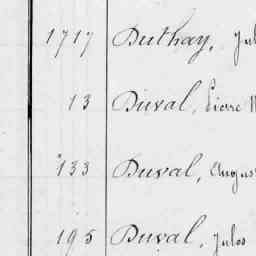 1717 Duthay, Jul
13 Duval, Pierre
133 Duval, Augus
195 Duval, Jules